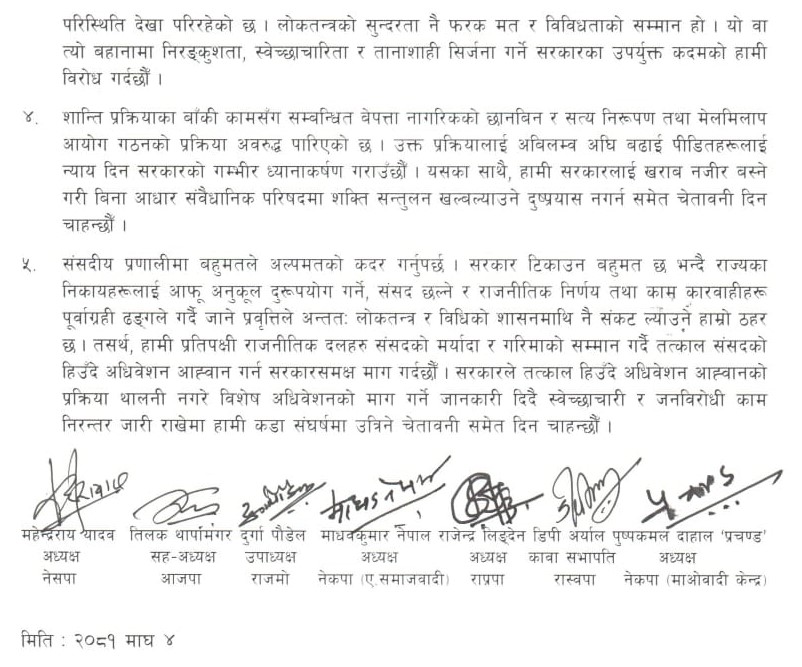 परिस्थिति देखा परिरहेको छ । लोकतन्त्रको सुन्दरता नै फरक मत र विविधताको सम्मान हो । यो वा
त्यो बहानामा निरङ्कुशता, स्वेच्छाचारिता र तानाशाही सिर्जना गर्ने सरकारका उपर्युक्त कदमको हामी
विरोध गर्दछौँ ।
४. शान्ति प्रक्रियाका बाँकी कामसँग सम्बन्धित वेपत्ता नागरिकको छानबिन र सत्य निरूपण तथा मेलमिलाप
आयोग गठनको प्रक्रिया अवरुद्ध पारिएको छ । उक्त प्रक्रियालाई अविलम्ब अघि बढाई पीडितहरूलाई
न्याय दिन सरकारको गम्भीर ध्यानाकर्षण गराउँछौँ । यसका साथै, हामी सरकारलाई खराब नजीर बस्ने
गरी बिना आधार संवैधानिक परिषदमा शक्ति सन्तुलन खल्बल्याउने दुष्प्रयास नगर्न समेत चेतावनी दिन
चाहन्छौँ ।
५. संसदीय प्रणालीमा बहुमतले अल्पमतको कदर गर्नुपर्छ । सरकार टिकाउन बहुमत छ भन्दै राज्यका
निकायहरूलाई आफू अनुकूल दुरूपयोग गर्ने, संसद छल्ने र राजनीतिक निर्णय तथा काम कारवाहीहरू
पूर्वाग्रही ढङ्गले गर्दै जाने प्रवृत्तिले अन्ततः लोकतन्त्र र विधिको शासनमाथि नै संकट ल्याउने हाम्रो ठहर
छ । तसर्थ, हामी प्रतिपक्षी राजनीतिक दलहरु संसदको मर्यादा र गरिमाको सम्मान गर्दै तत्काल संसदको
हिउँदे अधिवेशन आह्वान गर्न सरकारसमक्ष माग गर्दछौँ । सरकारले तत्काल हिउँदे अधिवेशन आह्वानको
प्रक्रिया थालनी नगरे विशेष अधिवेशनको माग गर्ने जानकारी दिदै स्वेच्छाचारी र जनविरोधी काम
निरन्तर जारी राखेमा हामी कडा संघर्षमा उत्रिने चेतावनी समेत दिन चाहन्छौँ ।
महेन्द्रराय यादव तिलक थापामगर दुर्गा पौडेल माधवकुमार नेपाल राजेन्द्र लिङ्देन डिपी अर्याल पुष्पकमल दाहाल 'प्रचण्ड'
अध्यक्ष सह-अध्यक्ष उपाध्यक्ष अध्यक्ष अध्यक्ष कावा सभापति अध्यक्ष
नेसपा आजपा राजमो नेकपा (ए.समाजवादी) राप्रपा रास्वपा नेकपा (माओवादी केन्द्र)
मिति : २०८१ माघ ४